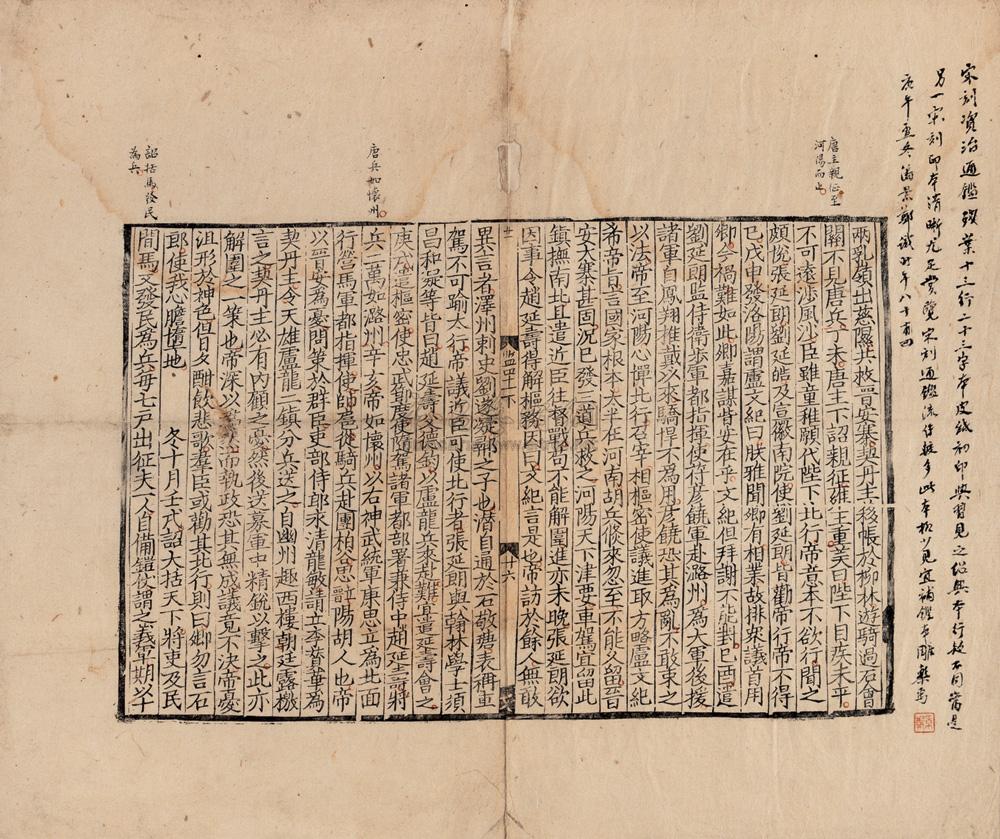 宋刻資治通鑑殘葉十三行二十三字本皮紙初印與習見之紹興本行款不同當是
另一宋刻印本清晰尤足賞覽宋刻通鑑流傳較多此本極少見宜補鑑
庚午 潘景鄭識時年八十有四
唐主親征至
河陽而止
唐兵如懷州
詔括馬發民
為兵
兩乳嶺出慈隰共救晉安寨契丹主移帳於柳林遊騎過石會
關不見唐兵丁未唐主下詔親征雍王重美曰陛下目疾未平
不可遠涉風沙臣雖童稚願代陛下北行帝意本不欲行聞之
頗悅張延朗劉延皓及宣徽南院使劉延朗皆勸帝行帝不得
已戊申發洛陽謂盧文紀曰朕雅聞卿有相業故排衆議首用
卿今禍難如此卿嘉謀皆安在乎文紀但拜謝不能對己酉遣
劉延朗監侍衛步軍都指揮使符彥饒軍赴潞州為大軍後援
諸軍自鳳翔推戴以來驕悍不為用彥饒恐其為亂不敢束之
以法帝至河陽心憚北行召宰相樞密使議進取方略盧文紀
希帝旨言國家根本太半在河南胡兵倏來忽至不能久留晉
安大寨甚固況已發三道兵救之河陽天下津要車駕宜留此
鎮撫南北且遣近臣往督戰苟不能解圍進亦未晚張延朗欲
因事令趙延壽得解樞務因曰文紀言是也帝訪於餘人無敢
監四十下
十六
異言者澤州刺史劉遂凝鄩之子也潛自通於石敬瑭表稱車
駕不可踰太行帝議近臣可使北行者張延朗與翰林學士須
昌和凝等皆曰趙延壽父德鈞以盧龍兵來赴難宜遣延壽會之
庚戌遣樞密使忠武節度使隨駕諸軍都部署兼侍中趙延壽將
兵二萬如潞州辛亥帝如懷州以右神武統軍康思立為北面
行營馬軍都指揮使帥扈從騎兵赴團柏谷思立晉陽胡人也帝
以晉安為憂問策於群臣吏部侍郎永清龍敏請立李贊華為
契丹主令天雄盧龍二鎮分兵送之自幽州趣西樓朝廷露檄
言之契丹主必有內顧之憂然後送募軍中精銳以擊之此亦
解圍之一策也帝深以為然而執政恐其無成議竟不決帝憂
沮形於神色但日夕酣飲悲歌羣臣或勸其北行則曰卿勿言石
郎使我心膽墮地 冬十月壬戌詔大括天下將吏及民
間馬又發民為兵每七戶出征夫一人自備鎧仗謂之義軍期以十